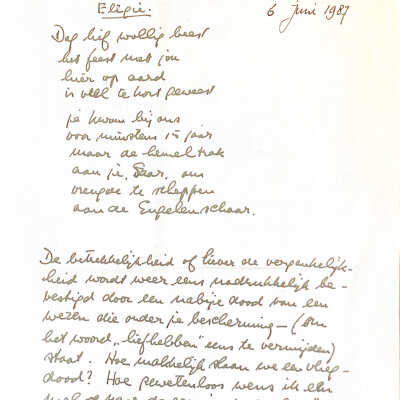 Elegie.
6 juni 1987
Dag lief wollig beest
het feest met jou
hier op aard
is veel te kort geweest
je kwam bij ons
voor minstens 15 jaar
maar de hemel trok
aan je, Saar, om
vreugde te scheppen
aan de Engelenschaar.
De betrekkelijkheid of liever de vergankelijk-
heid wordt weer eens nadrukkelijk be-
vestigd door een nabije dood van een
wezen die onder je bescherming – (om
het woord „liefhebben" eens te vermijden)
staat. Hoe makkelijk slaan we een vlieg
dood? Hoe gewetenloos wens ik een